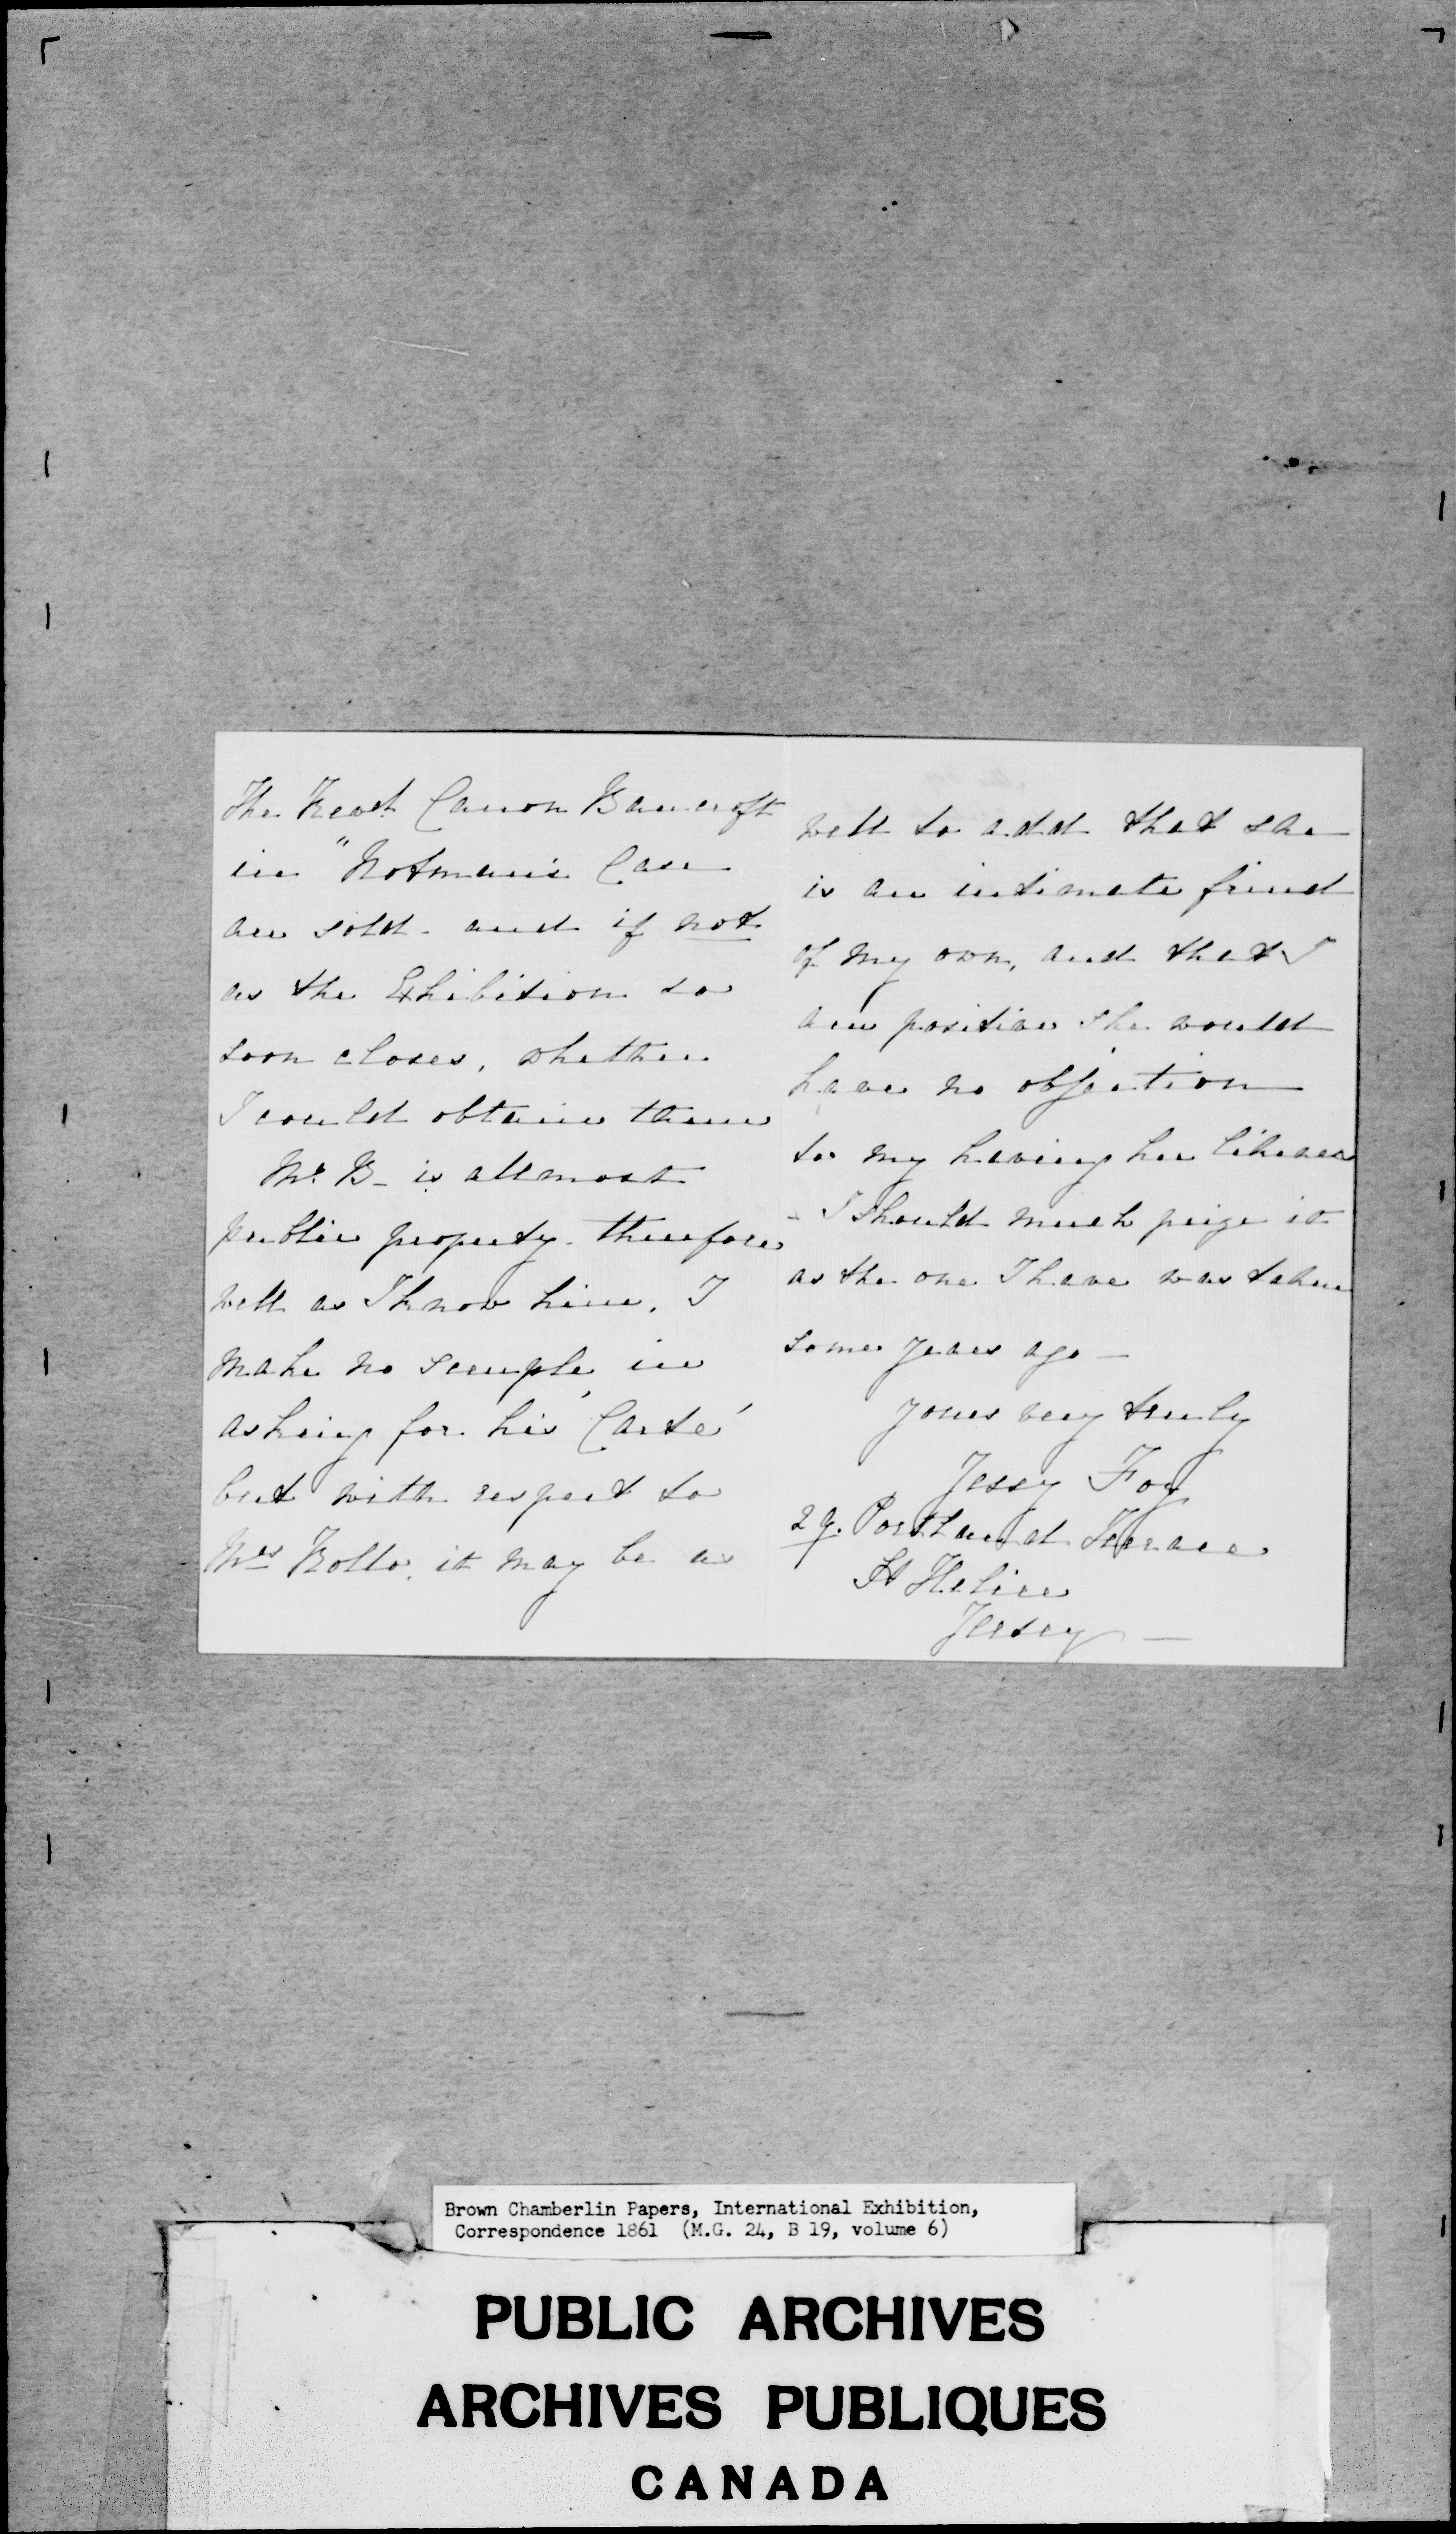 The Revd. Canon Bancroft
in "Notman's Case
are sold. and if not
as the Exhibition so
soon closes, whether
I could obtain them
Mr. B- is allmost
public property. therefore
well as I know him, I
make no scruple in
asking for his 'Carte'
but with respect to
Mrs Rollo, it may be as
well to add that she
is an intimate friend
of my own, and that I
am positive she would
have no objection
to my having her likeness
- I should much prize it
as the one I have was taken
some years ago -
Yours very truly
Jessy Foy
29. Portland Terrace
St Helier
Jersey -
Brown Chamberlin Papers, International Exhibition,
Correspondence 1861 (M.G. 24, B 19, volume 6)
PUBLIC ARCHIVES
ARCHIVES PUBLIQUES
CANADA